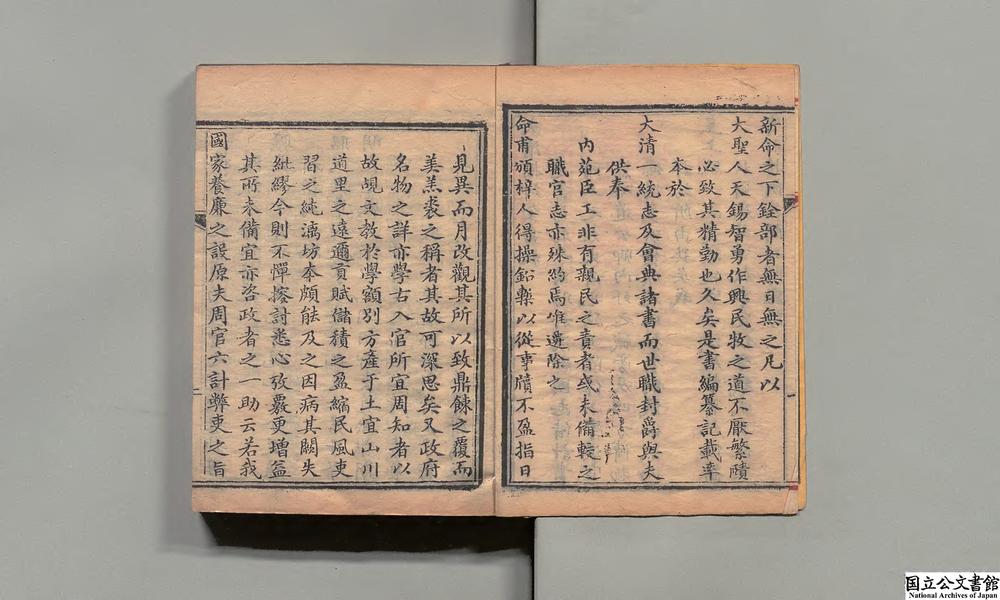 新命之下銓部者無日無之凡以
大聖人天錫智勇作興民牧之道不厭繁賾
必致其精勤也久矣是書編纂記載率
本於
大清一統志及會典諸書而世職封爵與夫
供奉
內苑臣工非有親民之責者或未備較之
職官志亦殊約焉唯遷除之
命甫頒梓人得操鉛槧以從事牘不盈指日
見異而月改觀其所以致鼎餗之覆而
美羔裘之稱者其故可深思矣又政府
名物之詳亦學古入官所宜周知者以
故覘文教於學額別方產于土宜山川
道里之遠邇貢賦儲積之盈縮民風吏
習之純漓坊本頗能及之因病其闕失
紕繆今則不憚搜討悉心攷覈更增益
其所未備宜亦咨政者之一助云若我
國家養廉之設原夫周官六計弊吏之旨
国立公文書館
National Archives of Japan